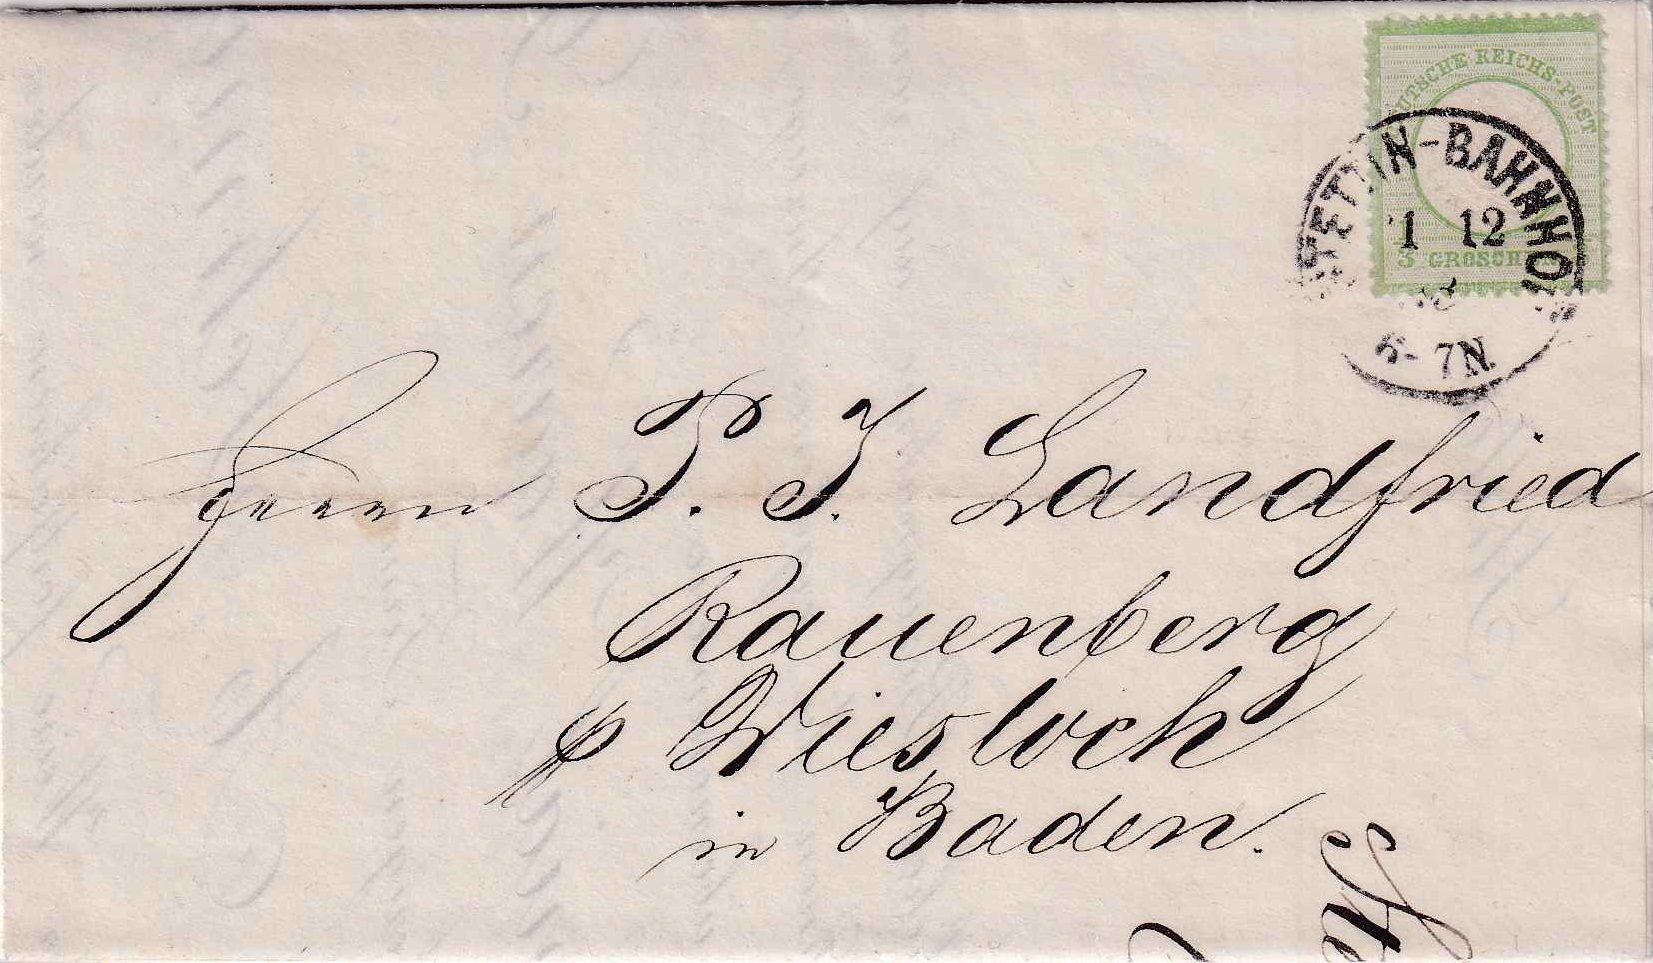 DEUTSCHE REICHS-POST
STETTIN-BAHNHOF
1 12
3 GROSCHEN
6-7N.
Herrn P. J. Landfried
Rauenberg
p Wiesloch
in Baden.